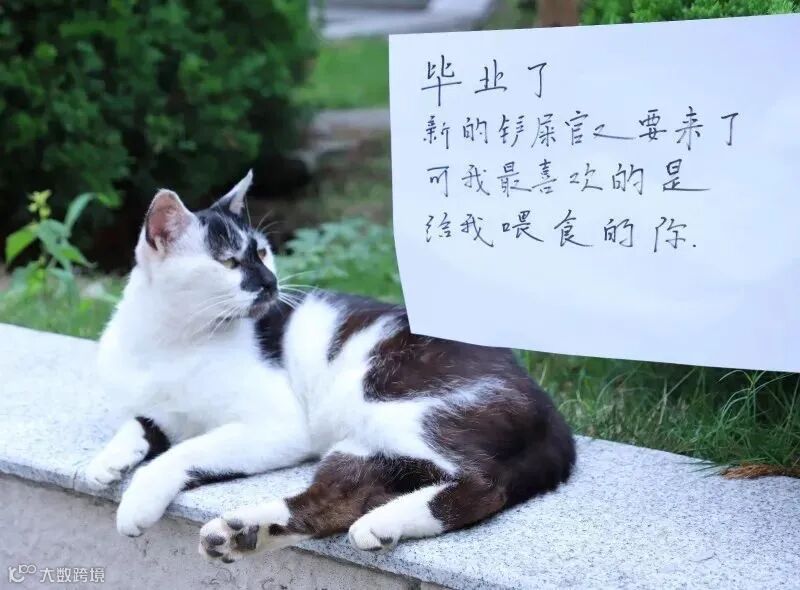 毕业了
新的铲屎官又要来了
可我最喜欢的是
给我喂食的你.
大数跨境